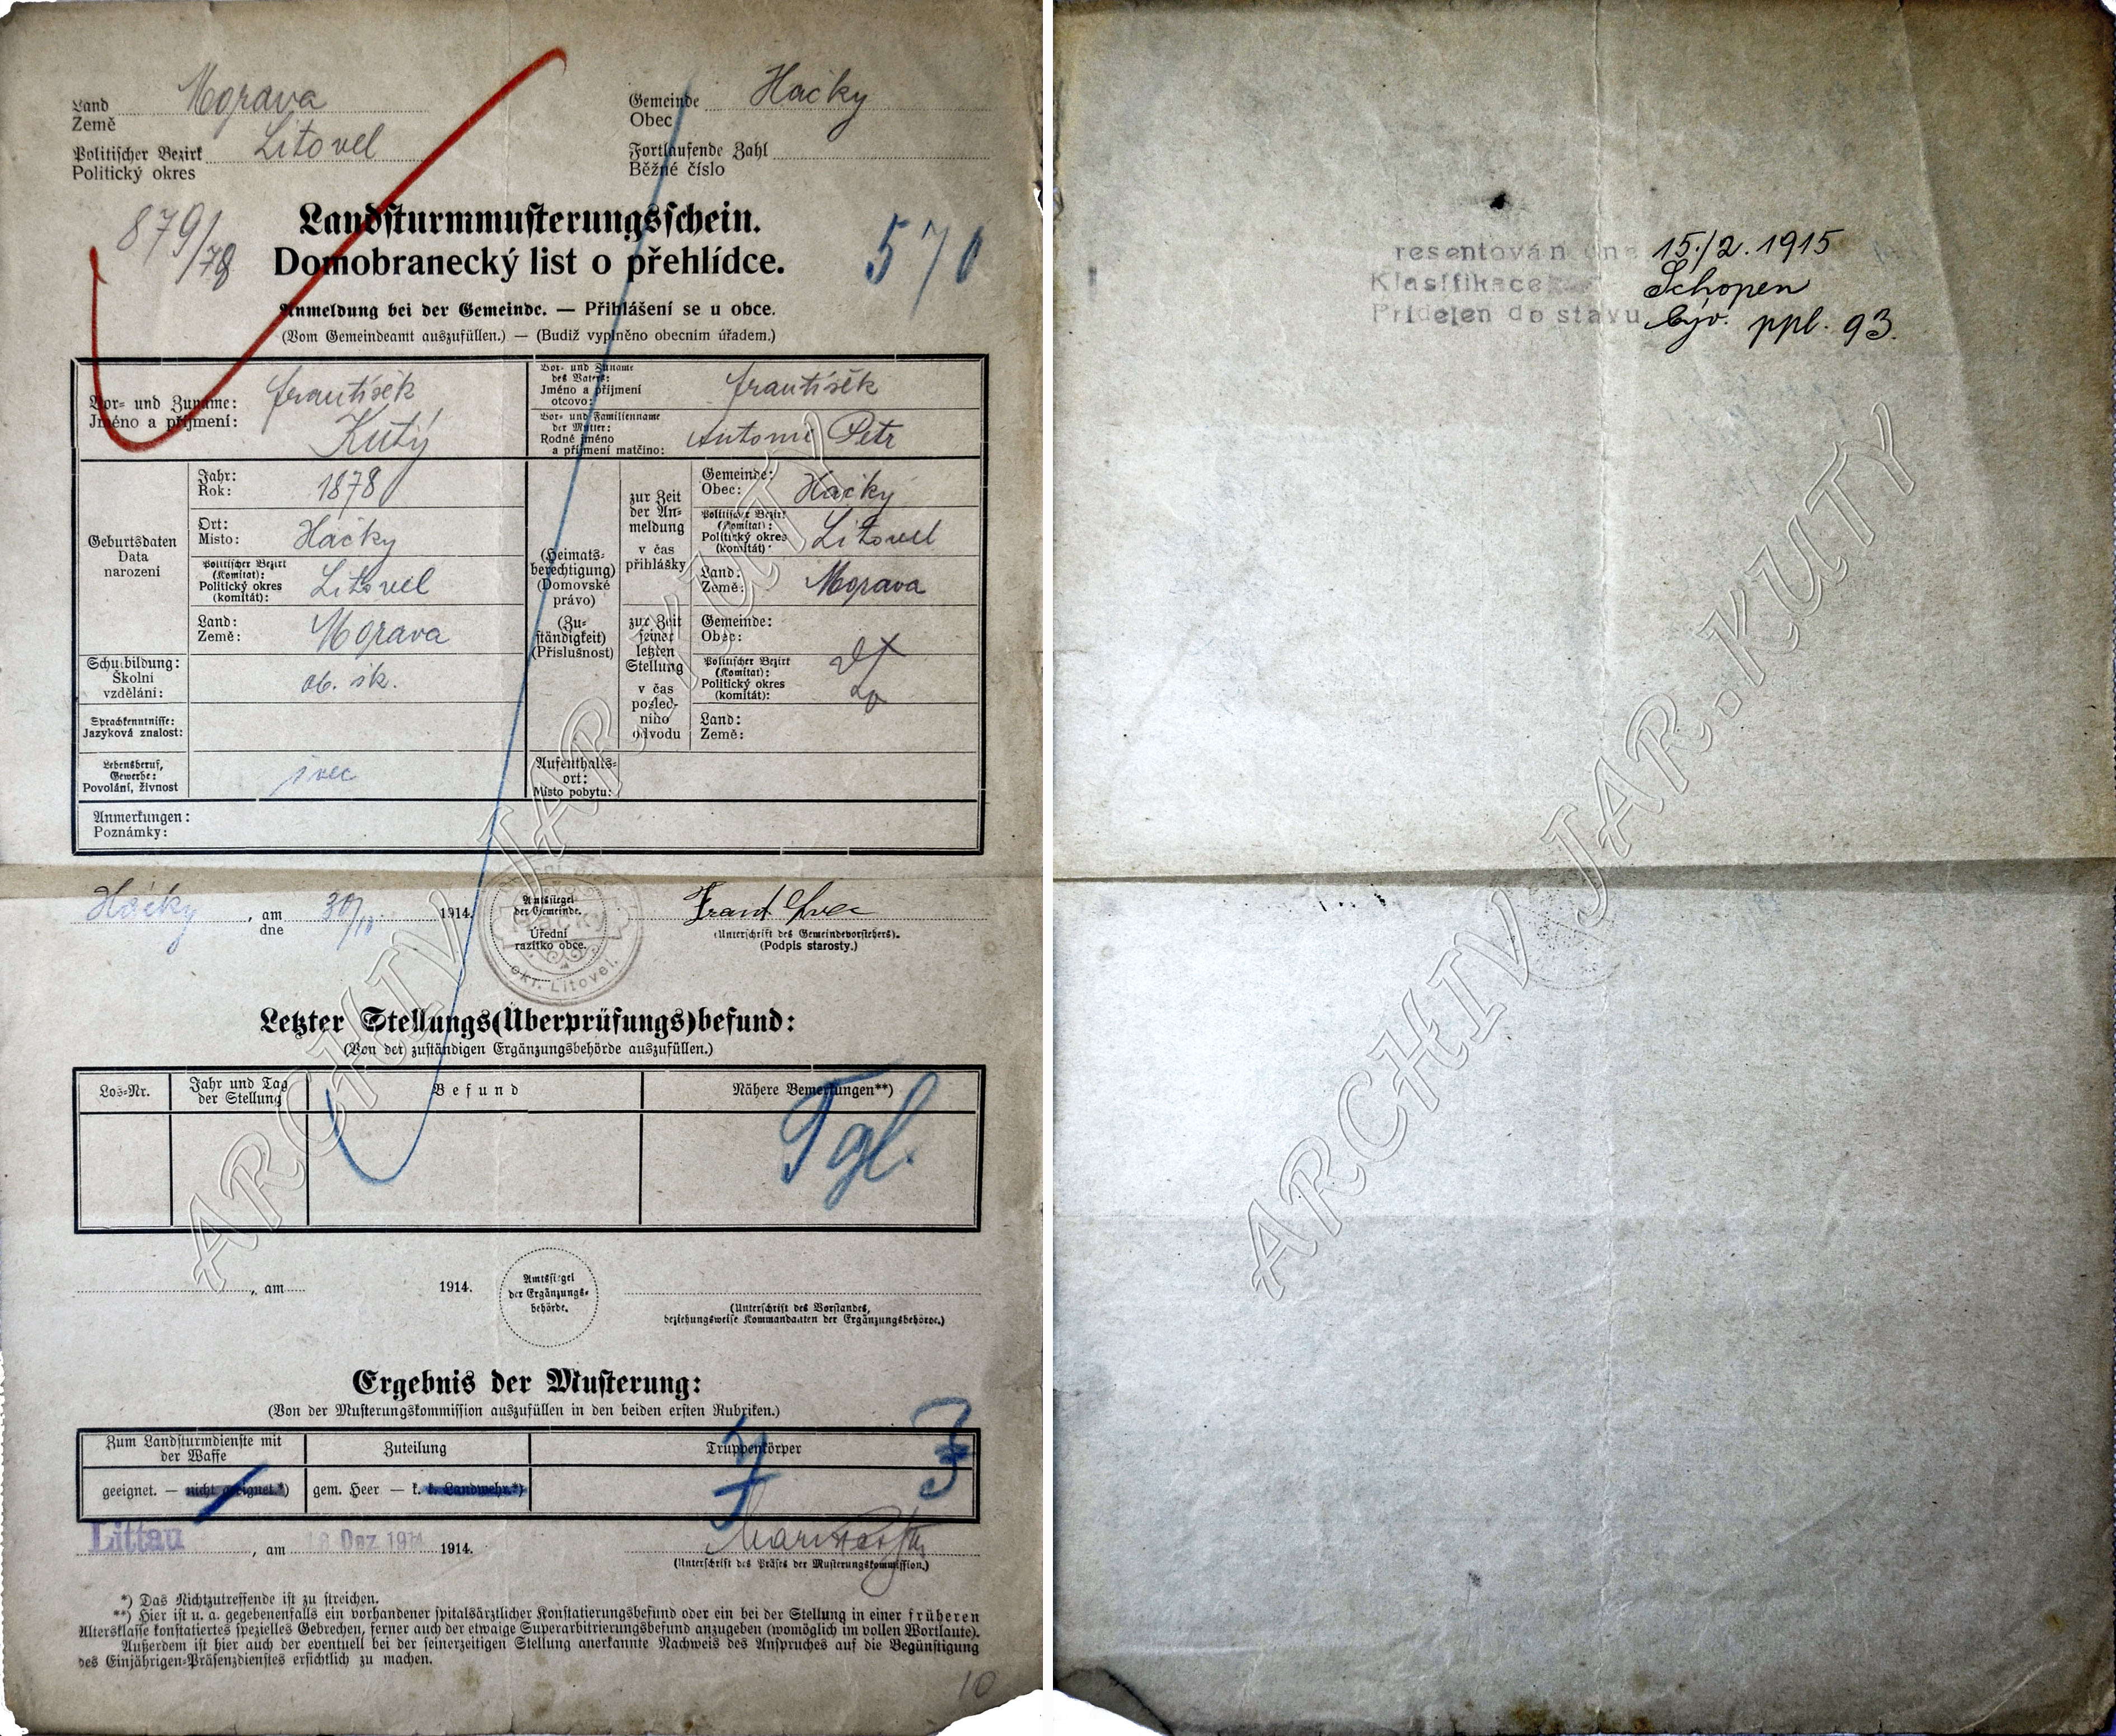 Land Morava
Země
Gemeinde Hačky
Obec
Politischer Bezirk Litovel
Politický okres
Fortlaufende Zahl
Běžné číslo
879/78
Landsturmmusterungsschein.
Domobranecký list o přehlídce.
570
Anmeldung bei der Gemeinde. — Přihlášení se u obce.
(Vom Gemeindeamt auszufüllen.) — (Budiž vyplněno obecním úřadem.)
Vor- und Zuname:
Jméno a příjmení:
František
Kutý
Vor- und Zuname
des Vaters:
Jméno a příjmení
otcovo:
František
Vor- und Familienname
der Mutter:
Rodné jméno
a příjmení matčino:
Petr
Geburtsdaten
Data
narození
Jahr:
Rok: 1878
Ort:
Místo: Hačky
Politischer Bezirk
(Komitat):
Politický okres
(komitát):
Litovel
Land:
Země: Morava
Schulbildung:
Školní
vzdělání:
ob. šk.
Sprachkenntnisse:
Jazyková znalost:
Lebensberuf,
Gewerbe:
Povolání, živnost
švec
(Heimats-
berechtigung)
(Domovské
právo)
(Zu-
ständigkeit)
(Příslušnost)
zur Zeit
der An-
meldung
v čas
přihlášky
Gemeinde:
Obec: Hačky
Politischer Bezirk
(Komitat):
Politický okres
(komitát):
Litovel
Land:
Země: Morava
zur Zeit
seiner
letzten
Stellung
v čas
posled-
ního
odvodu
Gemeinde:
Obec:
Politischer Bezirk
(Komitat):
Politický okres
(komitát):
Land:
Země:
Aufenthalts-
ort:
Místo pobytu:
Anmerkungen:
Poznámky:
Hačky, am 30/11 1914.
dne
Amtssiegel
der Gemeinde.
Úřední
razítko obce.
okr. Litovel.
Frant. Švec
(Unterschrift des Gemeindevorstehers).
(Podpis starosty.)
Letzter Stellungs(Überprüfungs)befund:
(Von der zuständigen Ergänzungsbehörde auszufüllen.)
Los-Nr.
Jahr und Tag
der Stellung
Befund
Nähere Bemerkungen**)
Tgl.
, am 1914.
Amtssiegel
der Ergänzungs-
behörde.
(Unterschrift des Vorstandes,
beziehungsweise Kommandanten der Ergänzungsbehörde.)
Ergebnis der Musterung:
(Von der Musterungskommission auszufüllen in den beiden ersten Rubriken.)
Zum Landsturmdienste mit
der Waffe
Zuteilung
Truppenkörper
geeignet. — nicht geeignet.*)
gem. Heer — k. k. Landwehr.*)
Littau, am Dez 1914 1914.
(Unterschrift des Präses der Musterungskommission.)
*) Das Nichtzutreffende ist zu streichen.
**) Hier ist u. a. gegebenenfalls ein vorhandener spitalsärztlicher Konstatierungsbefund oder ein bei der Stellung in einer früheren
Altersklasse konstatiertes spezielles Gebrechen, ferner auch der etwaige Superarbitrierungsbefund anzugeben (womöglich im vollen Wortlaute).
Außerdem ist hier auch der eventuell bei der seinerzeitigen Stellung anerkannte Nachweis des Anspruches auf die Begünstigung
des Einjährigen-Präsenzdienstes ersichtlich zu machen.
10
ARCHIV JAR. KUTY
resentován dne 15./2. 1915
Klasifikace Schopen
Přidelen do stavu býv. ppl. 93.
ARCHIV JAR. KUTY